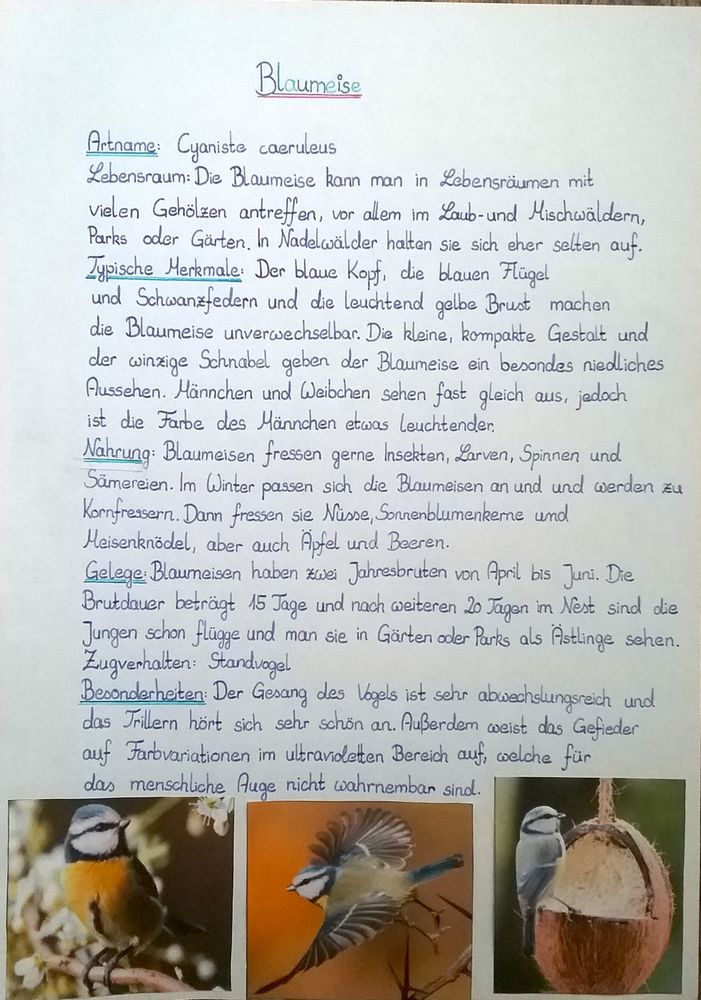 Blaumeise
Artname: Cyaniste caeruleus
Lebensraum: Die Blaumeise kann man in Lebensräumen mit
vielen Gehölzen antreffen, vor allem im Laub-und Mischwäldern,
Parks oder Gärten. In Nadelwälder halten sie sich eher selten auf.
Typische Merkmale: Der blaue Kopf, die blauen Flügel
und Schwanzfedern und die leuchtend gelbe Brust machen
die Blaumeise unverwechselbar. Die kleine, kompakte Gestalt und
der winzige Schnabel geben der Blaumeise ein besondes niedliches
Aussehen. Männchen und Weibchen sehen fast gleich aus, jedoch
ist die Farbe des Männchen etwas leuchtender.
Nahrung: Blaumeisen fressen gerne Insekten, Larven, Spinnen und
Sämereien. Im Winter passen sich die Blaumeisen an und und werden zu
Kornfressern. Dann fressen sie Nüsse, Sonnenblumenkerne und
Meisenknödel, aber auch Äpfel und Beeren.
Gelege: Blaumeisen haben zwei Jahresbruten von April bis Juni. Die
Brutdauer beträgt 15 Tage und nach weiteren 20 Tagen im Nest sind die
Jungen schon flügge und man sie in Gärten oder Parks als Ästlinge sehen.
Zugverhalten: Standvogel
Besonderheiten: Der Gesang des Vogels ist sehr abwechslungsreich und
das Trillern hört sich sehr schön an. Außerdem weist das Gefieder
auf Farbvariationen im ultravioletten Bereich auf, welche für
das menschliche Auge nicht wahrnembar sind.